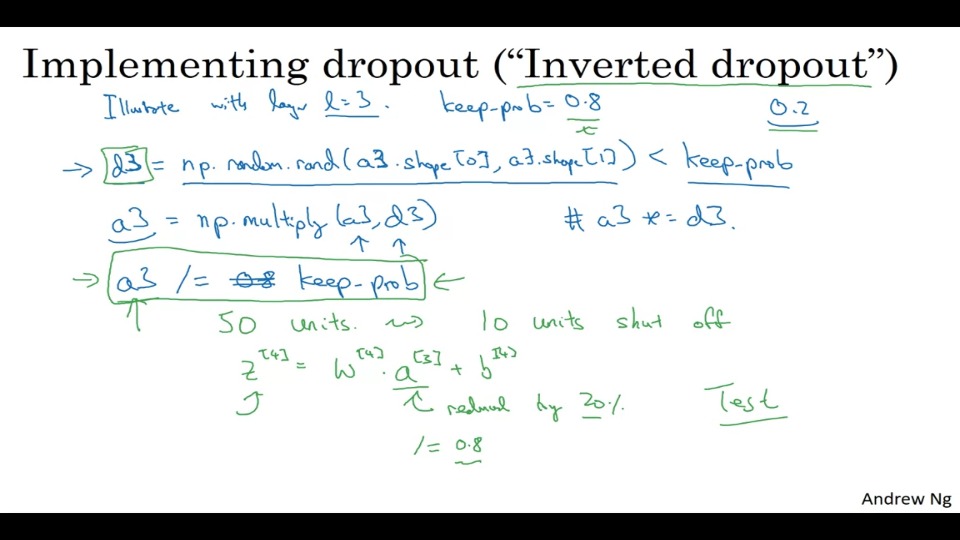 Implementing dropout (“Inverted dropout”)
Illustrate with layer l=3. keep-prob=0.8 0.2
→ d3 = np.random.rand(a3.shape[0], a3.shape[1]) < keep-prob
a3 = np.multiply(a3, d3) # a3 *= d3.
→ a3 /= 0.8 keep-prob ←
50 units. ⇝ 10 units shut off
z^[4] = W^[4] · a^[3] + b^[4]
reduced by 20%. Test
/= 0.8
Andrew Ng